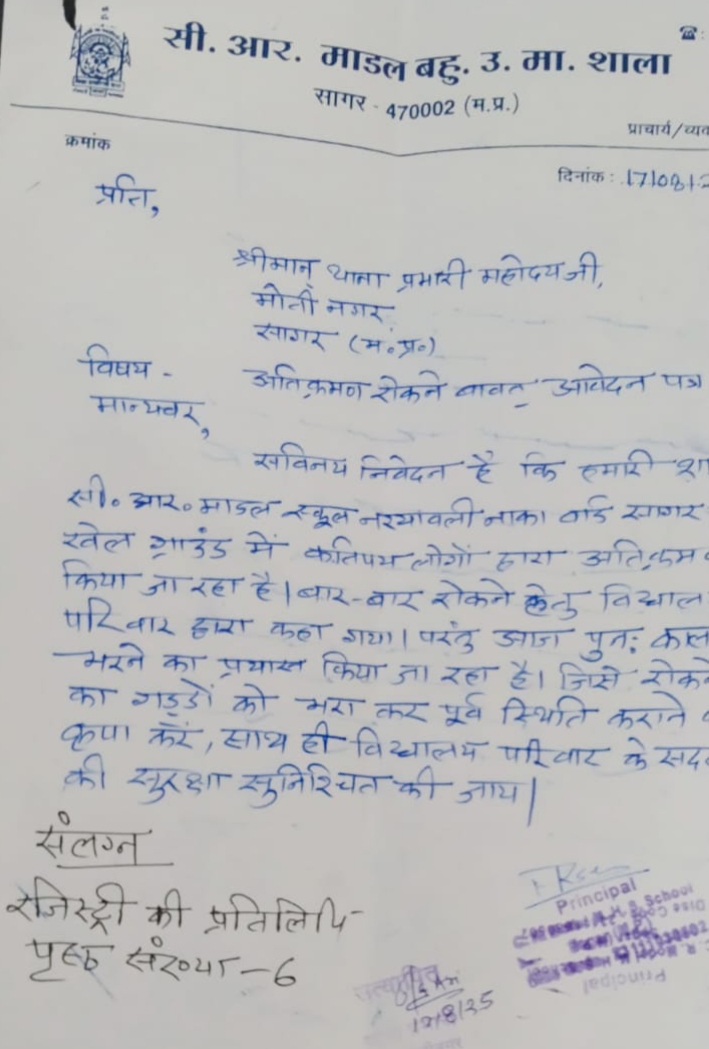 सी. आर. माडल बहु. उ. मा. शाला
सागर - 470002 (म.प्र.)
प्राचार्य/व्यव
क्रमांक
दिनांक : 17108
प्रति,
श्रीमान् थाना प्रभारी महोदय जी,
मोती नगर
सागर (म.प्र.)
विषय - अतिक्रमण रोकने बावत् आवेदन पत्र
मान्यवर,
सविनय निवेदन है कि हमारी शा
सी. आर. माडल स्कूल नरयावली नाका वार्ड सागर
खेल ग्राउंड में कतिपय लोगों द्वारा अतिक्रम
किया जा रहा है। बार-बार रोकने हेतु विद्याल
परिवार द्वारा कहा गया। परंतु आज पुनः काल
भरने का प्रयास किया जा रहा है। जिसे रोकने
का गड्डों को भरा कर पूर्व स्थिति कराने
कृपा करें, साथ ही विद्यालय परिवार के सद
की सुरक्षा सुनिश्चित की जाय।
संलग्न
रजिस्ट्री की प्रतिलिपि
पृष्ठ संख्या - 6
Principal
School
Principal
8/25